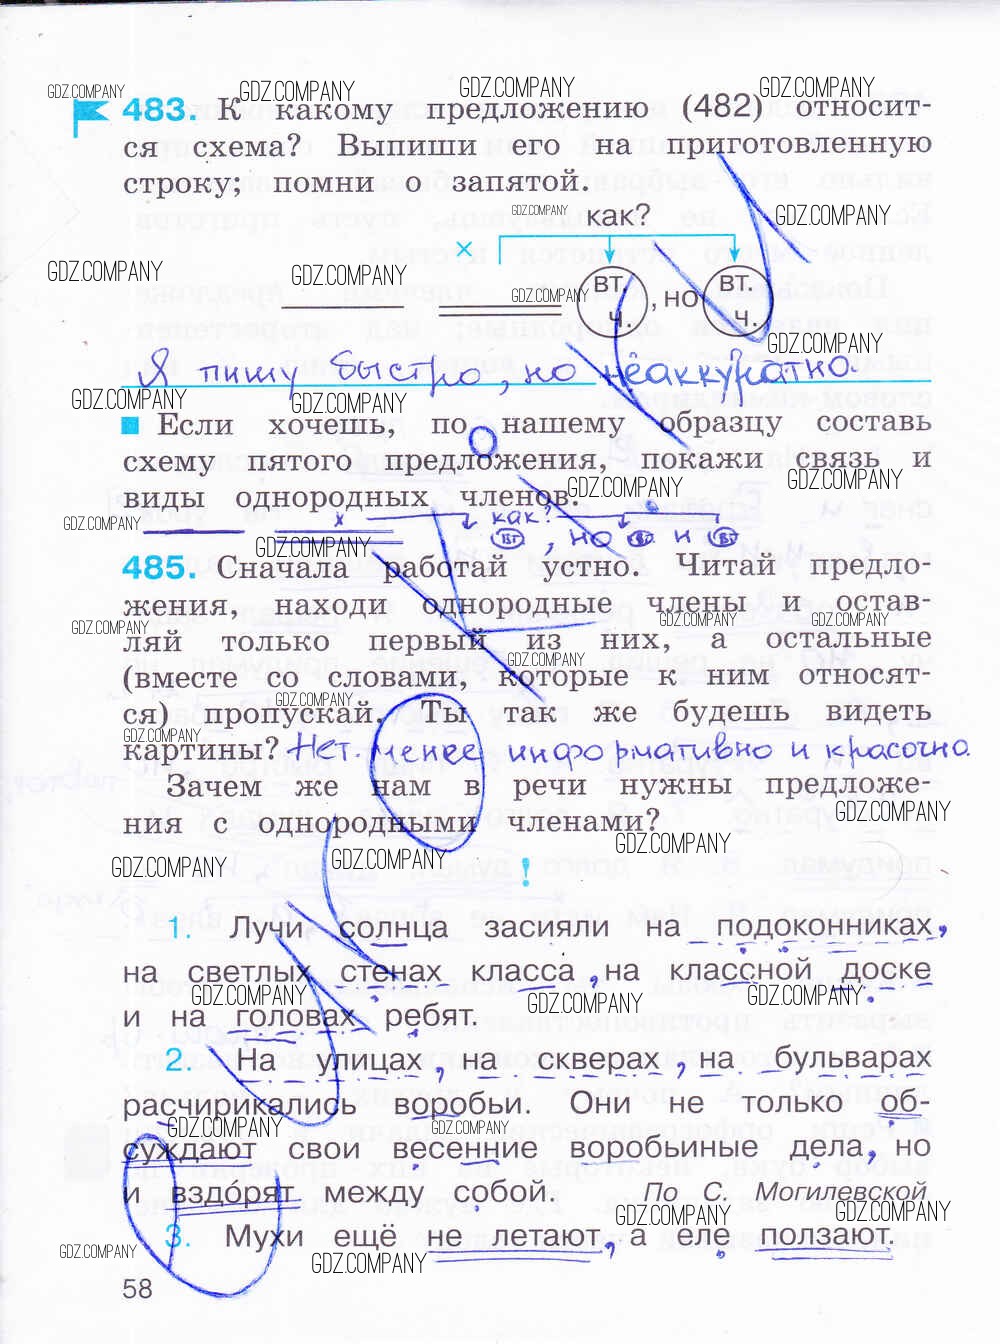 GDZ.COMPANY GDZ.COMPANY GDZ.COMPANY GDZ.COMPANY
483. К какому предложению (482) относит-
ся схема? Выпиши его на приготовленную
строку; помни о запятой.
GDZ.COMPANY как? GDZ.COMPANY
×
GDZ.COMPANY GDZ.COMPANY GDZ.COMPANY
вт. ч. , но вт. ч.
GDZ.COMPANY
Я пишу быстро, но неаккуратно.
GDZ.COMPANY GDZ.COMPANY
Если хочешь, по нашему образцу составь
схему пятого предложения, покажи связь и
GDZ.COMPANY GDZ.COMPANY
виды однородных членов.
GDZ.COMPANY х как?
вт , но вт и вт
GDZ.COMPANY
485. Сначала работай устно. Читай предло-
жения, находи однородные члены и остав-
GDZ.COMPANY GDZ.COMPANY GDZ.COMPANY
ляй только первый из них, а остальные
GDZ.COMPANY
(вместе со словами, которые к ним относят-
GDZ.COMPANY
ся) пропускай. Ты так же будешь видеть
GDZ.COMPANY
картины? Нет. менее информативно и красочно
Зачем же нам в речи нужны предложе-
GDZ.COMPANY
ния с однородными членами?
GDZ.COMPANY
GDZ.COMPANY GDZ.COMPANY
!
1. Лучи солнца засияли на подоконниках,
на светлых стенах класса, на классной доске
GDZ.COMPANY GDZ.COMPANY GDZ.COMPANY
и на головах ребят.
2. На улицах, на скверах, на бульварах
расчирикались воробьи. Они не только об-
GDZ.COMPANY GDZ.COMPANY
суждают свои весенние воробьиные дела, но
и вздо́рят между собой. По С. Могилевской
GDZ.COMPANY GDZ.COMPANY
3. Мухи ещё не летают, а еле ползают.
GDZ.COMPANY GDZ.COMPANY
58